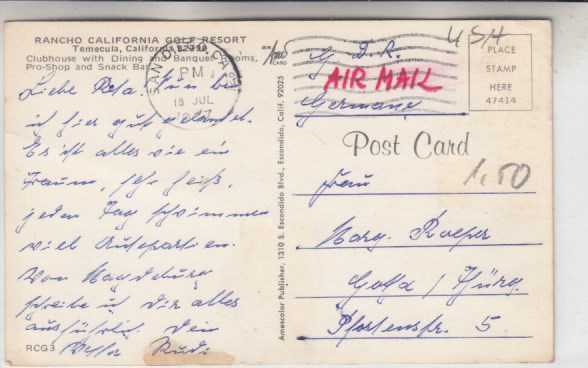 RANCHO CALIFORNIA GOLF RESORT
Temecula, California 92390
Clubhouse with Dining and Banquet Rooms,
Pro-Shop and Snack Bar.
PM
18 JUL
Liebe Rosa. Nun bin
ich hier gut gelandet.
Es ist alles wie ein
Traum, sehr heiß,
jeden Tag schwimmen
viel Autopartien.
Von Magdeburg
schreibe ich Dir alles
ausführlich. Dein
Vetter Rudi
RCG3
Amescolor Publisher, 1310 S. Escondido Blvd., Escondido, Calif. 92025
POST CARD
USA
G. D. R.
AIR MAIL
Germany
PLACE
STAMP
HERE
47414
Post Card
1,50
Frau
Marg. Kaeper
Gotha / Thürg.
Pfortenstr. 5